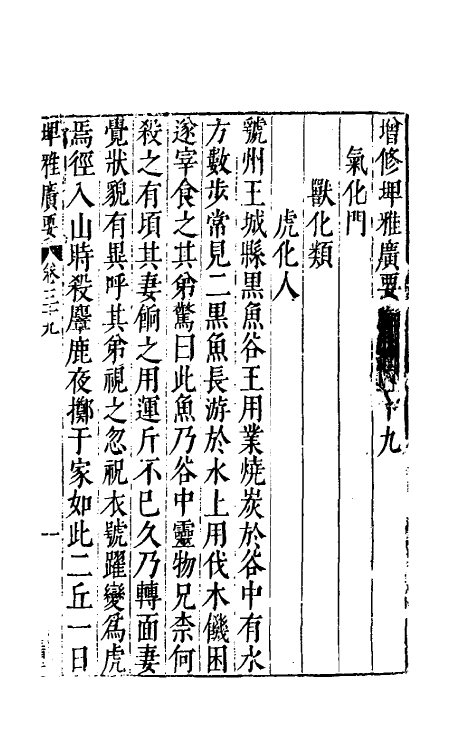 增修埤雅廣要 十九
氣化門
獸化類
虎化人
虢州王城縣黒魚谷王用業燒炭於谷中有水
方數步常見二黒魚長游於水上用伐木饑困
遂宰食之其弟驚曰此魚乃谷中靈物兄柰何
殺之有頃其妻餉之用運斤不已久乃轉面妻
覺狀貌有異呼其弟視之忽祝衣號躍變爲虎
焉徑入山時殺麞鹿夜擲于家如此二丘一日
埤雅廣要 卷三十九 一